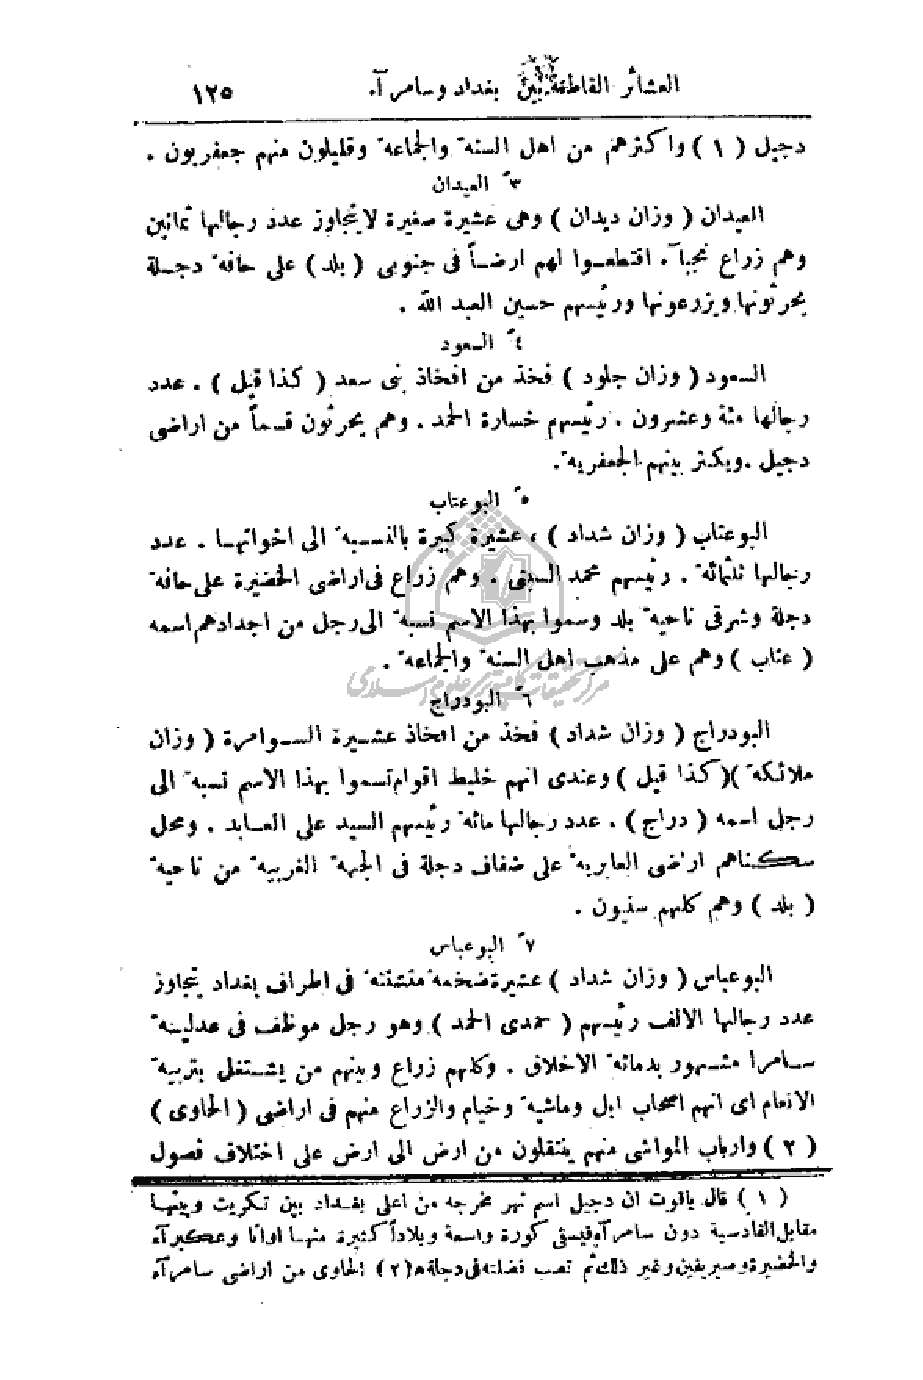 العشائر القاطنة بين بغداد وسامرآء ١٢٥
دجيل ( ١ ) واكثرهم من اهل السنة والجماعة وقليلون منهم جعفريون .
٣ً العيدان
العيدان ( وزان ديدان ) وهى عشيرة صغيرة لا يتجاوز عدد رجالها ثمانين
وهم زراع نجبآء . اقتطعوا لهم ارضاً فى جنوبى ( بلد ) على حافة دجلة
يحرثونها ويزرعونها ورئيسهم حسين العبد الله .
٤ً السعود
السعود ( وزان جلود ) فخذ من افخاذ بنى سعد ( كذا قيل ) . عدد
رجالها مئة وعشرون . رئيسهم خسارة الحمد . وهم يحرثون قسماً من اراضى
دجيل . ويكثر بينهم الجعفرية .
٥ً البوعتاب
البوعتاب ( وزان شداد ) ، عشيرة كبيرة بالنسبة الى اخواتها . عدد
رجالها ثلثمائة . رئيسهم محمد السبتى . وهم زراع فى اراضى الخضيرة على حافة
دجلة وشرقى ناحية بلد وسموا بهذا الاسم نسبة الى رجل من اجدادهم اسمه
( عتاب ) وهم على مذهب اهل السنة والجماعة .
مركز تحقيقات كامپيوترى علوم اسلامى
٦ً البودراج
البودراج ( وزان شداد ) فخذ من افخاذ عشيرة السوامرة ( وزان
ملائكة ) ( كذا قيل ) وعندى انهم خليط اقوام تسموا بهذا الاسم نسبة الى
رجل اسمه ( دراج ) . عدد رجالها مائة رئيسهم السيد على العابد . ومحل
سكناهم اراضى العابرية على ضفاف دجلة فى الجهة الغربية من ناحية
( بلد ) وهم كلهم سنيون .
٧ً البوعباس
البوعباس ( وزان شداد ) عشيرة ضخمة منتشئة فى اطراف بغداد يتجاوز
عدد رجالها الالف رئيسهم ( حمدى الحمد ) وهو رجل موظف فى عدلية
سامرا مشهور بدماثة الاخلاق . وكلهم زراع وبينهم من يشتغل بتربية
الانعام اى انهم اصحاب ابل وماشية وخيام والزراع منهم فى اراضى ( الحاوى )
( ٢ ) وارباب المواشى منهم ينتقلون من ارض الى ارض على اختلاف فصول
( ١ ) قال ياقوت ان دجيل اسم نهر مخرجه من اعلى بغداد بين تكريت وبينها
مقابل القادسية دون سامرآء فيسقى كورة واسعة وبلاداً كثيرة منها اوانا وعكبرآء
والحضيرة وصريفين وغير ذلك ثم تصب فضلته فى دجلة ه ( ٢ ) الحاوى من اراضى سامرآء